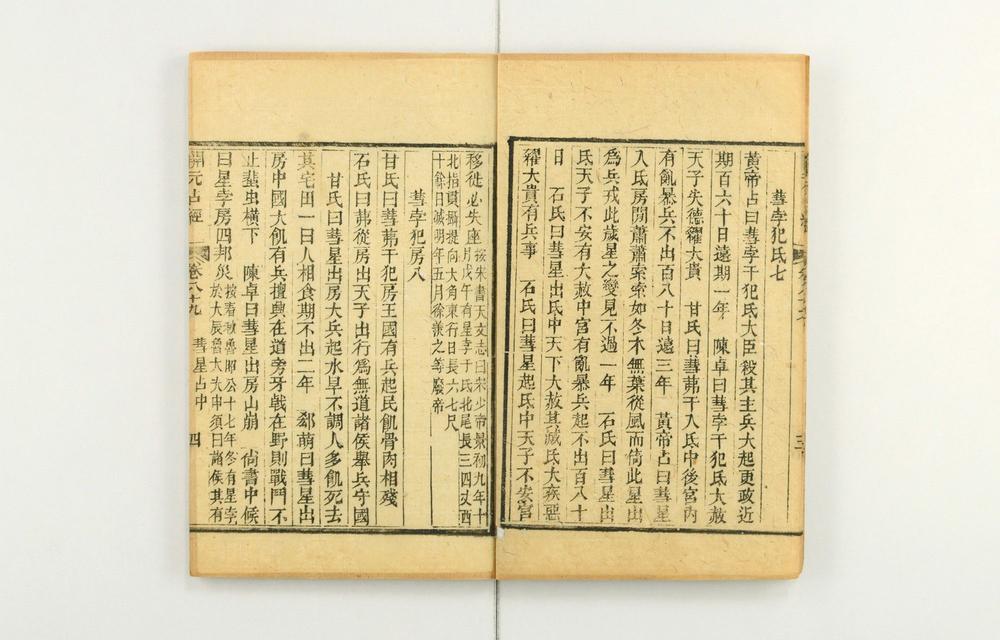 彗孛犯氐七
黃帝占曰彗孛干犯氐大臣殺其主兵大起更政近
期百六十日遠期一年　陳卓曰彗孛干犯氐大赦
天子失德糴大貴　甘氏曰彗茀干入氐中後宮內
有亂暴兵不出百八十日遠三年　黃帝占曰彗星
入氐房間蕭蕭索索如冬木無葉從風而倚此星出
為兵戎此歲星之變見不過一年　石氏曰彗星出
氐天子不安有大赦中宮有亂暴兵起不出百八十
日　石氏曰彗星出氐中天下大赦其諴氐大疾惡
糴大貴有兵事　石氏曰彗星起氐中天子不安宮
移徙必失座
按宋書天文志曰宋少帝景初九年十
月戊午有星孛于氐北尾長三四丈西
北指貫攝提向大角東行日長六七尺
十餘日滅明年五月徐羨之等廢帝
彗孛犯房八
甘氏曰彗茀干犯房王國有兵起民飢骨肉相殘
石氏曰茀從房出天子出行為無道諸侯舉兵守國
甘氏曰彗星出房大兵起水旱不調人多飢死去
其宅田一曰人相食期不出二年　郄萌曰彗星出
房中國大飢有兵擅興在道旁牙戟在野則戰鬥不
止蜚虫橫下　陳卓曰彗星出房山崩　尙書中候
曰星孛房四邦災
按春秋魯昭公十七年冬有星孛
於大辰魯大夫申須曰諸侯其有
開元占經
卷八十九
彗星占中
四